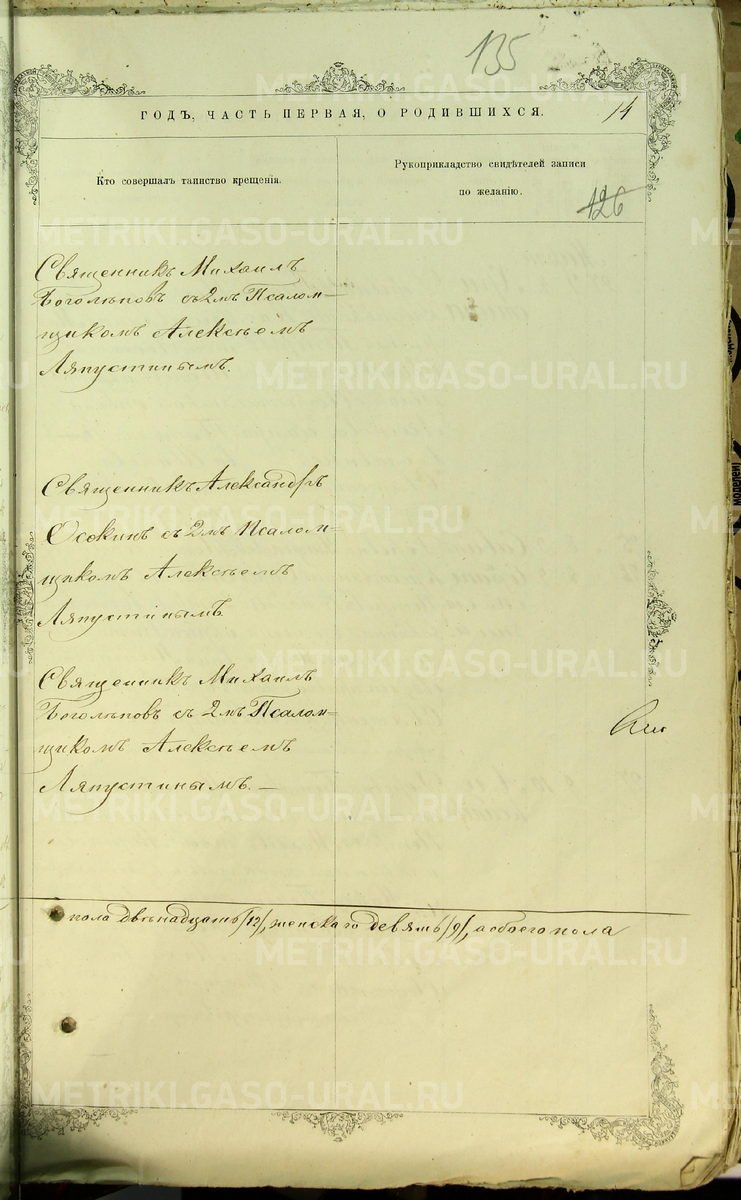 135
ГОДЪ, ЧАСТЬ ПЕРВАЯ, О РОДИВШИХСЯ.
14
Кто совершалъ таинство крещенія.
Рукоприкладство свидѣтелей записи
по желанію.
126
Священникъ Михаилъ
Боголѣповъ съ 2мъ Псалом-
щикомъ Алексѣемъ
Ляпустинымъ.
Священникъ Александръ
Осокинъ съ 2мъ Псалом-
щикомъ Алексѣемъ
Ляпустинымъ
Священникъ Михаилъ
Боголѣповъ съ 2мъ Псалом-
щикомъ Алексѣемъ
Ляпустинымъ. —
пола двѣнадцать /12/, женскаго девять /9/, а обоего пола
METRIKI.GASO-URAL.RU